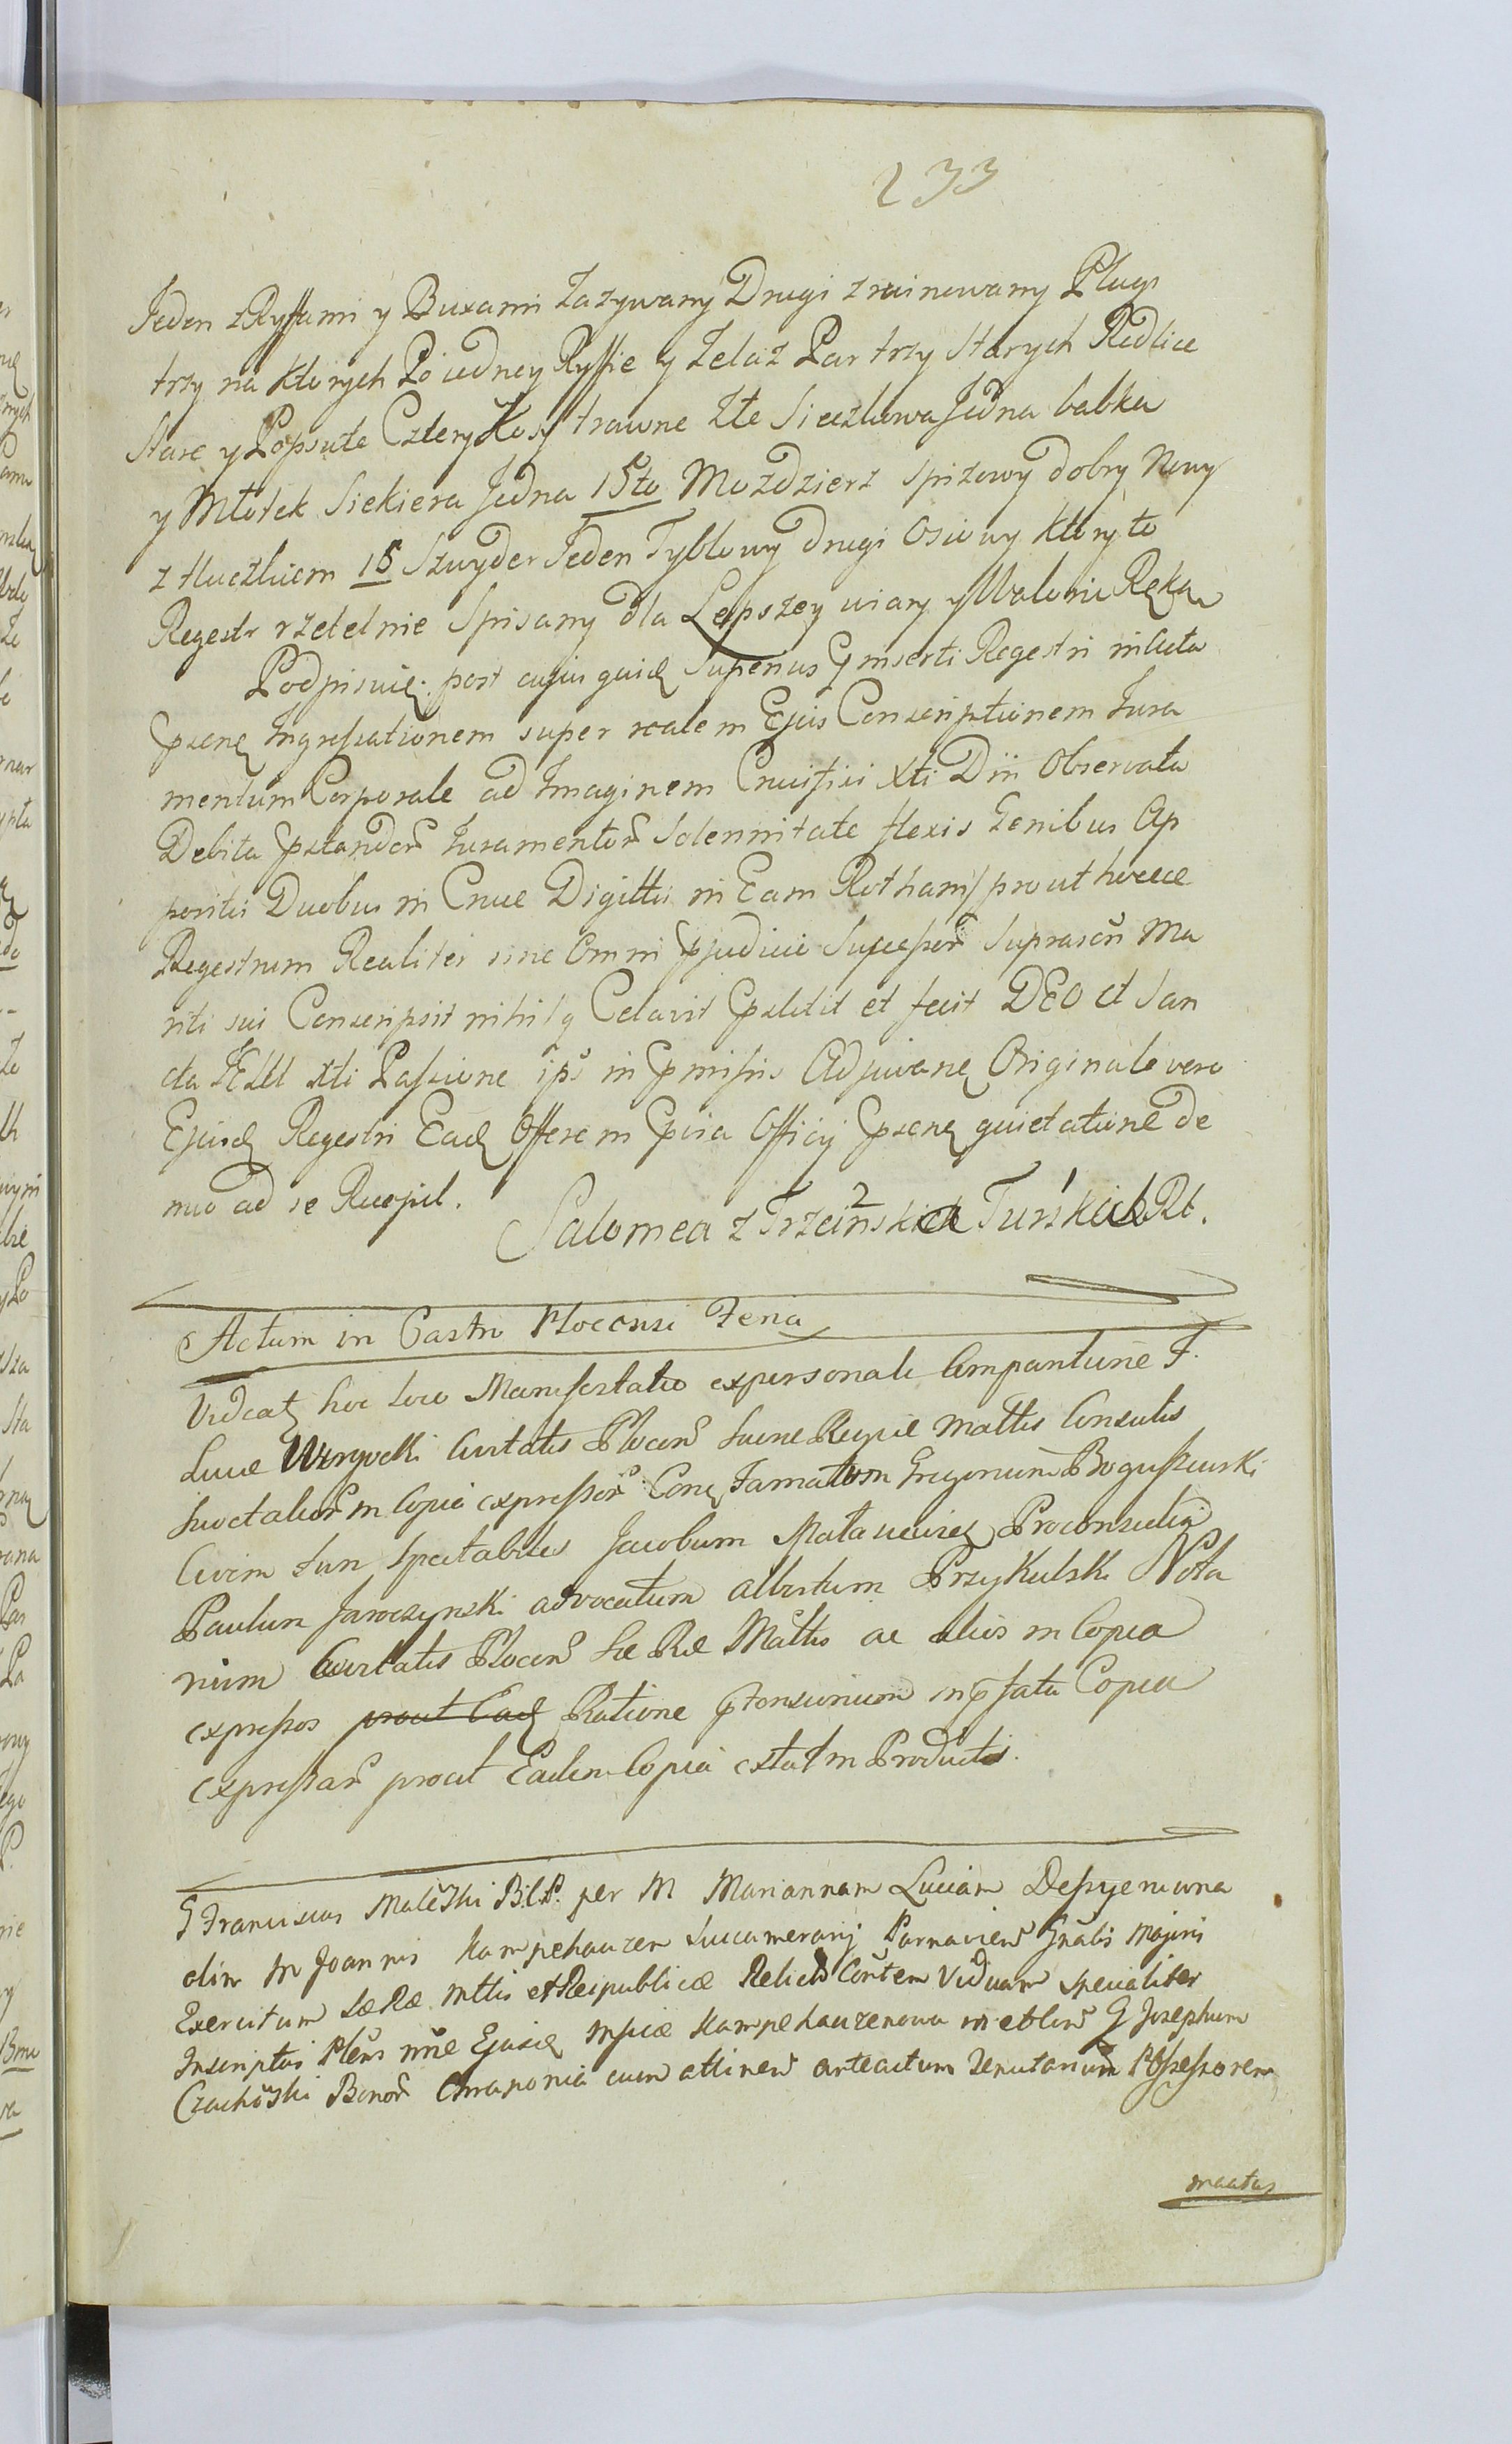 233
Jeden z Ryffami y Buxami Zazywany Drugi zruinowany Plugi
trzy na ktorych Po iedney Ryffie y Zelaz Par trzy Starych Redlice
Stare y Popsute Cztery Kosy trawne Złe Sieczkowa Jedna babka
y Młotek Siekiera Jedna 15to Mozdzierz spizowy dobry Nowy
z tłuczkiem 16 Szwyder Jeden Tyblowy drugi Osiowy ktory to
Regestr rzetelnie Spisany dla Lepszey wiary y Waloru Ręką
Podpisuię. post cujus quid Superius inserti Regestri in Acta
psene Ingrossationem super realem Ejus Conscriptionem Jura
mentum Corporale ad Imaginem Crucifixi Xti Dni Observata
Debita pstandor Juramentor Solennitate flexis Genibus Ap
positis Duobus in Cruce Digittis in Eam Rotham prout hocce
Regestrum Realiter sine Omni pjudicio Sucessor Suprascri Ma
riti sui Conscripsit nihilq Celavit pstitit et fecit DEO et San
cta JESU Xti Passione ips in pmissis Adjuvane Originale vero
Ejusd Regestri Ead Offerem Officij psene quietatione de
nuo ad se Recepit.
Salomea z Trzcinskich 2 Turskich Rt.
Actum in Castro Plocensi Feria
Videatz hoc loco Manifestatio ex personali Comparitione F.
Lucae Civitatis Plocen Sacrae Regiae Mattis Consulis
in Copia expressor Cone Famatum Gregorium Boguszewski
Civem tum Spectabiles Jacobum Proconsulem
Paulum Jaroczynski advocatum albertum Przykulski Nota
rium Civitatis Plocen Sae Rae Mattis ac alios in Copia
expressos prout Ead Ratione ptensionum in pfata Copia
expressar prout Eadem Copia extat in Productis.
G Franciscus per M Mariannam Luciam
olim M Joannis Kampehauzen Succamerarij Parnavien Gnalis Majoris
Exercituum Sae Rae Mttis et Reipublicae Relict Contem Viduam specialiter
Inscriptus Plens nne Ejusd Msicae Kampehauzenowa in et G Josephum
Bonor Chraponia cum attinen arteactum Tenutarium Possessorem